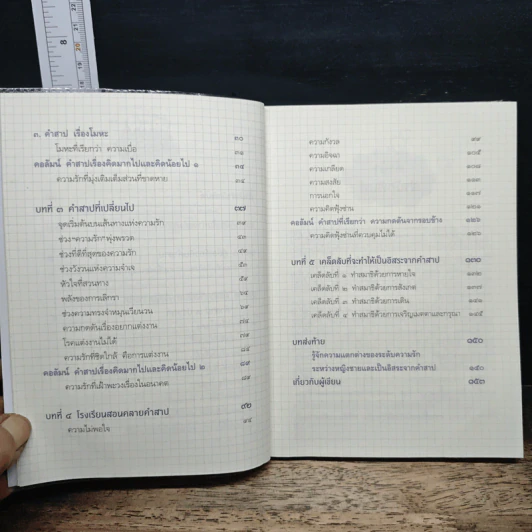 ๓. คำสาป เรื่องโมหะ ๓๐
โมหะที่เรียกว่า ความเบื่อ ๓๑
คอลัมน์ คำสาปเรื่องคิดมากไปและคิดน้อยไป ๑ ๓๔
ความรักที่มุ่งเติมเต็มส่วนที่ขาดหาย ๓๔
บทที่ ๓ คำสาปที่เปลี่ยนไป ๓๗
จุดเริ่มต้นบนเส้นทางแห่งความรัก ๓๙
ช่วง"ความรัก"พุ่งพรวด ๔๓
ช่วงที่ดีที่สุดของความรัก ๔๕
ช่วงวังวนแห่งความจำเจ ๕๐
หัวใจที่สวนทาง ๕๙
พลังของการเลิกรา ๖๔
ช่วงความทรงจำหมุนเวียนวน ๖๙
ความกดดันเรื่องอยากแต่งงาน ๗๔
โรคแต่งงานไม่ได้ ๗๙
ความรักที่ชิดใกล้ คือการแต่งงาน ๘๔
คอลัมน์ คำสาปเรื่องคิดมากไปและคิดน้อยไป ๒ ๘๙
ความรักที่เฝ้าพะวงเรื่องในอนาคต ๘๙
บทที่ ๔ โรงเรียนสอนคลายคำสาป ๙๒
ความไม่พอใจ ๙๔
ความกังวล ๙๙
ความอิจฉา ๑๐๕
ความเกลียด ๑๐๙
ความสงสัย ๑๑๓
การนอกใจ ๑๑๗
ความคิดฟุ้งซ่าน ๑๒๑
คอลัมน์ คำสาปที่เรียกว่า ความกดดันจากรอบข้าง ๑๒๖
ความคิดฟุ้งซ่านที่ควบคุมไม่ได้ ๑๒๖
บทที่ ๕ เคล็ดลับที่จะทำให้เป็นอิสระจากคำสาป ๑๓๐
เคล็ดลับที่ ๑ ทำสมาธิด้วยการหายใจ ๑๓๒
เคล็ดลับที่ ๒ ทำสมาธิด้วยการสังเกต ๑๓๗
เคล็ดลับที่ ๓ ทำสมาธิด้วยการเดิน ๑๔๑
เคล็ดลับที่ ๔ ทำสมาธิด้วยการเจริญเมตตาและกรุณา ๑๔๕
บทส่งท้าย ๑๕๐
รู้จักความแตกต่างของระดับความรัก
ระหว่างหญิงชายและเป็นอิสระจากคำสาป ๑๕๐
เกี่ยวกับผู้เขียน ๑๕๓